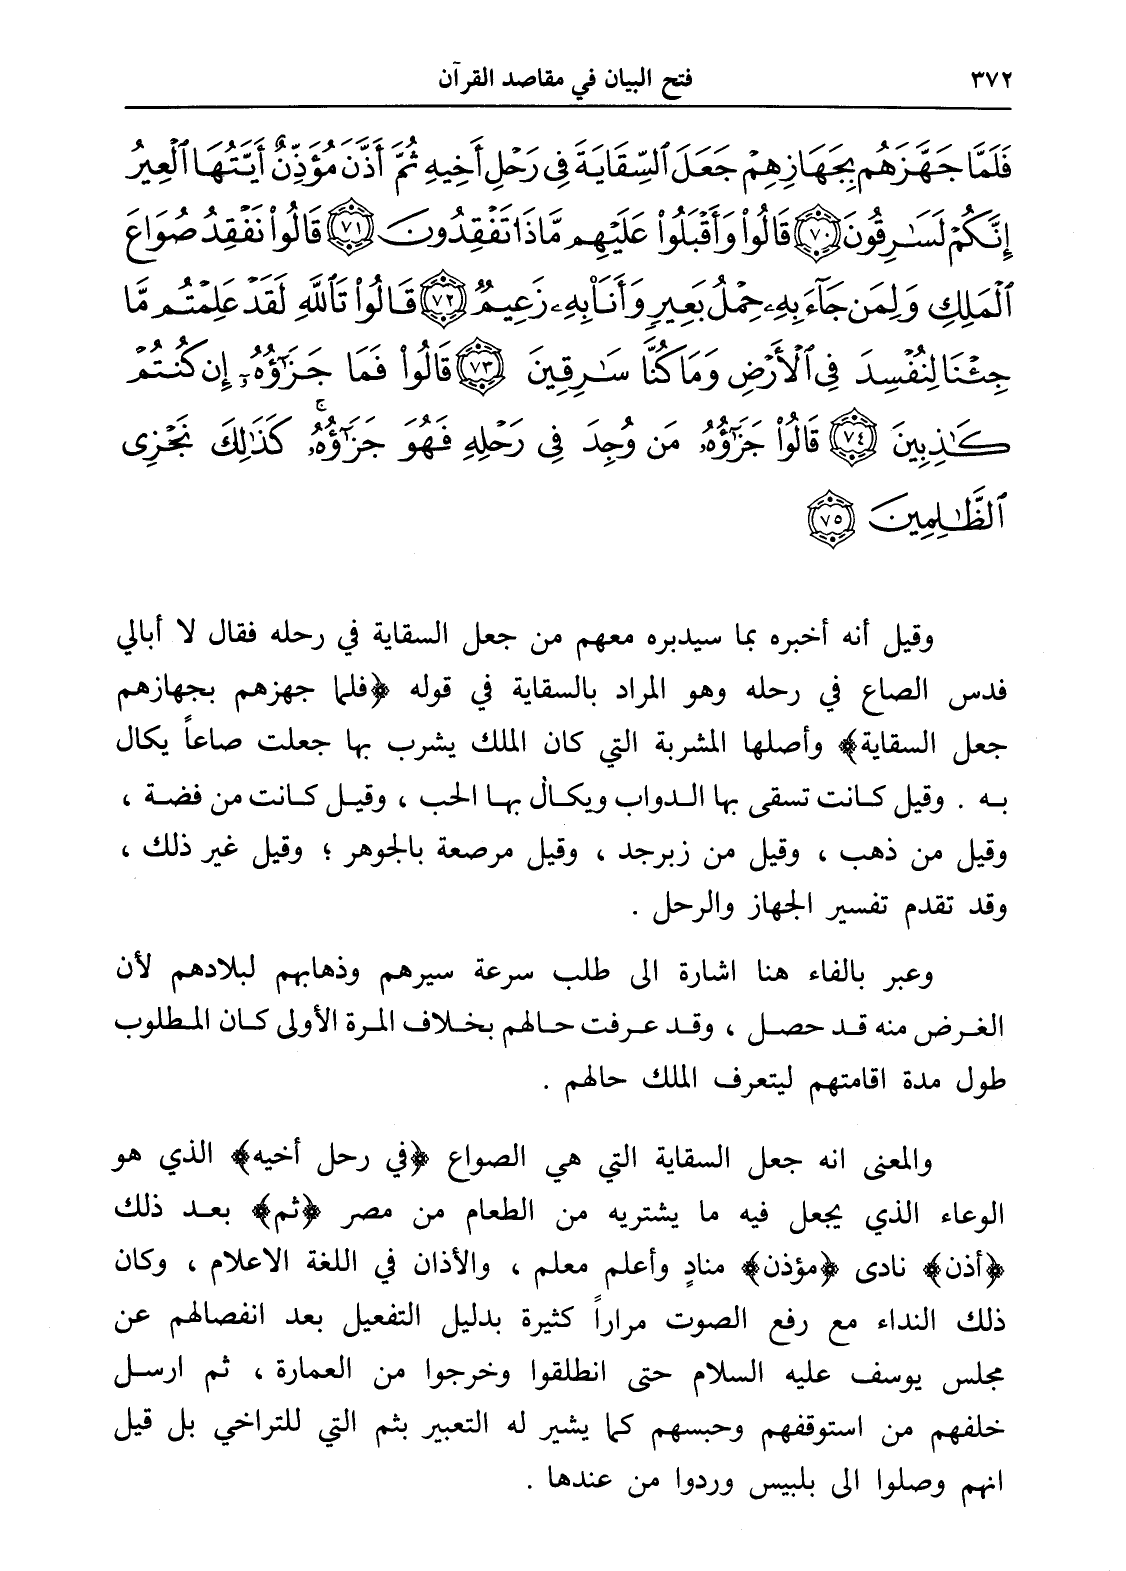 ٣٧٢ فتح البيان في مقاصد القرآن
فَلَمَّا جَهَّزَهُم بِجَهَازِهِمْ جَعَلَ ٱلسِّقَايَةَ فِى رَحْلِ أَخِيهِ ثُمَّ أَذَّنَ مُؤَذِّنٌ أَيَّتُهَا ٱلْعِيرُ
إِنَّكُمْ لَسَٰرِقُونَ ﴿٧٠﴾ قَالُوا۟ وَأَقْبَلُوا۟ عَلَيْهِم مَّاذَا تَفْقِدُونَ ﴿٧١﴾ قَالُوا۟ نَفْقِدُ صُوَاعَ
ٱلْمَلِكِ وَلِمَن جَآءَ بِهِۦ حِمْلُ بَعِيرٍ وَأَنَا۠ بِهِۦ زَعِيمٌ ﴿٧٢﴾ قَالُوا۟ تَٱللَّهِ لَقَدْ عَلِمْتُم مَّا
جِئْنَا لِنُفْسِدَ فِى ٱلْأَرْضِ وَمَا كُنَّا سَٰرِقِينَ ﴿٧٣﴾ قَالُوا۟ فَمَا جَزَٰٓؤُهُۥٓ إِن كُنتُمْ
كَٰذِبِينَ ﴿٧٤﴾ قَالُوا۟ جَزَٰٓؤُهُۥ مَن وُجِدَ فِى رَحْلِهِۦ فَهُوَ جَزَٰٓؤُهُۥ ۚ كَذَٰلِكَ نَجْزِى
ٱلظَّٰلِمِينَ ﴿٧٥﴾
وقيل أنه أخبره بما سيدبره معهم من جعل السقاية في رحله فقال لا أبالي
فدس الصاع في رحله وهو المراد بالسقاية في قوله ﴿فلما جهزهم بجهازهم
جعل السقاية﴾ وأصلها المشربة التي كان الملك يشرب بها جعلت صاعاً يكال
به . وقيل كانت تسقى بها الدواب ويكال بها الحب ، وقيل كانت من فضة ،
وقيل من ذهب ، وقيل من زبرجد ، وقيل مرصعة بالجوهر ؛ وقيل غير ذلك ،
وقد تقدم تفسير الجهاز والرحل .
وعبر بالفاء هنا اشارة الى طلب سرعة سيرهم وذهابهم لبلادهم لأن
الغرض منه قد حصل ، وقد عرفت حالهم بخلاف المرة الأولى كان المطلوب
طول مدة اقامتهم ليتعرف الملك حالهم .
والمعنى انه جعل السقاية التي هي الصواع ﴿في رحل أخيه﴾ الذي هو
الوعاء الذي يجعل فيه ما يشتريه من الطعام من مصر ﴿ثم﴾ بعد ذلك
﴿أذن﴾ نادى ﴿مؤذن﴾ منادٍ وأعلم معلم ، والأذان في اللغة الاعلام ، وكان
ذلك النداء مع رفع الصوت مراراً كثيرة بدليل التفعيل بعد انفصالهم عن
مجلس يوسف عليه السلام حتى انطلقوا وخرجوا من العمارة ، ثم ارسل
خلفهم من استوقفهم وحبسهم كما يشير له التعبير بثم التي للتراخي بل قيل
انهم وصلوا الى بلبيس وردوا من عندها .